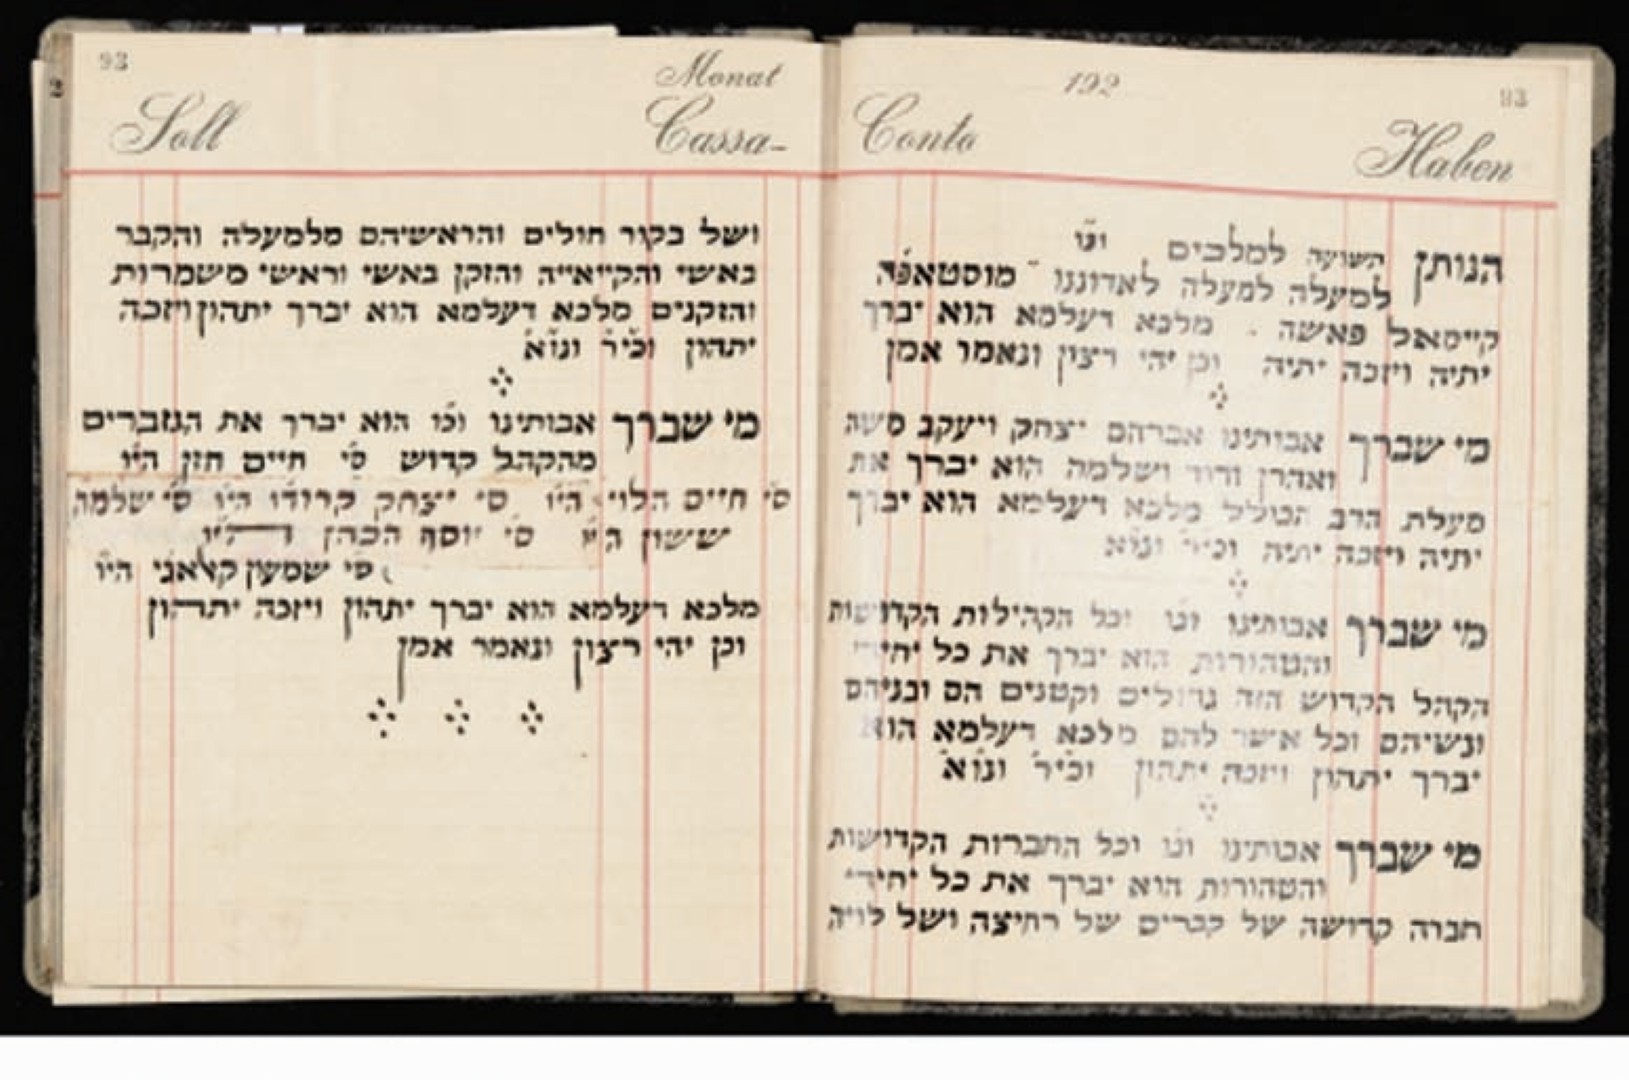 93
Monat
Soll
Cassa-
192
93
Conto
Haben
הנותן תשועה למלכים וגו
למעלה למעלה לאדוננו מוסטאפה
קיימאל פאשה . מלכא דעלמא הוא יברך
יתיה ויזכה יתיה וכן יהי רצון ונאמר אמן
מי שברך אבותינו אברהם יצחק ויעקב משה
ואהרן ודוד ושלמה הוא יברך את
מעלת הרב הכולל מלכא דעלמא הוא יברך
יתיה ויזכה יתיה וכיר ונוא
מי שברך אבותינו וגו וכל הקהילות הקדושות
והטהורות הוא יברך את כל יחידי
הקהל הקדוש הזה גדולים וקטנים הם ובניהם
ונשיהם וכל אשר להם מלכא דעלמא הוא
יברך יתהון ויזכה יתהון וכיר ונוא
מי שברך אבותינו וגו וכל החברות הקדושות
והטהורות הוא יברך את כל יחידי
חברה קדושה של קברים של רחיצה ושל לויה
ושל בקור חולים והראשיהם מלמעלה והקבר
באשי והקייאייה והזקן באשי וראשי משמרות
והזקנים מלכא דעלמא הוא יברך יתהון ויזכה
יתהון וכיר ונוא
מי שברך אבותינו וכו הוא יברך את הגזברים
מהקהל קדוש סי חיים חזן היו
סי חיים הלוי היו סי יצחק קרודו היו סי שלמה
ששון היו סי יוסף הכהן היו
סי שמעון קלאני היו
מלכא דעלמא הוא יברך יתהון ויזכה יתהון
וכן יהי רצון ונאמר אמן